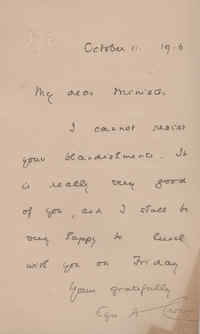 October 11. 19
My dear
I cannot resist
your blandishments. It
is really very good
of you, and I shall be
very happy to lunch
with you on Friday
Yours gratefully